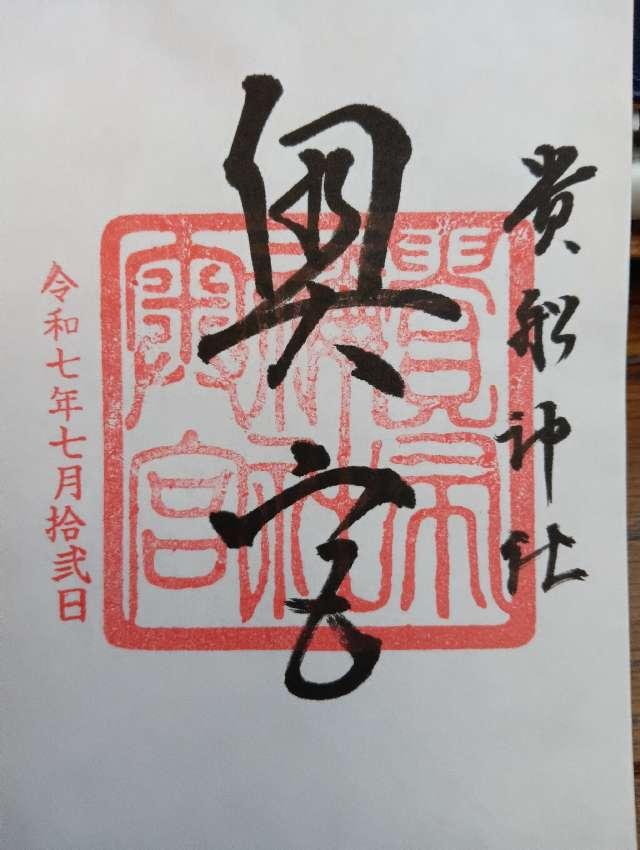 貴船神社
奥宮
貴布
奥宮
令和七年七月拾弐日